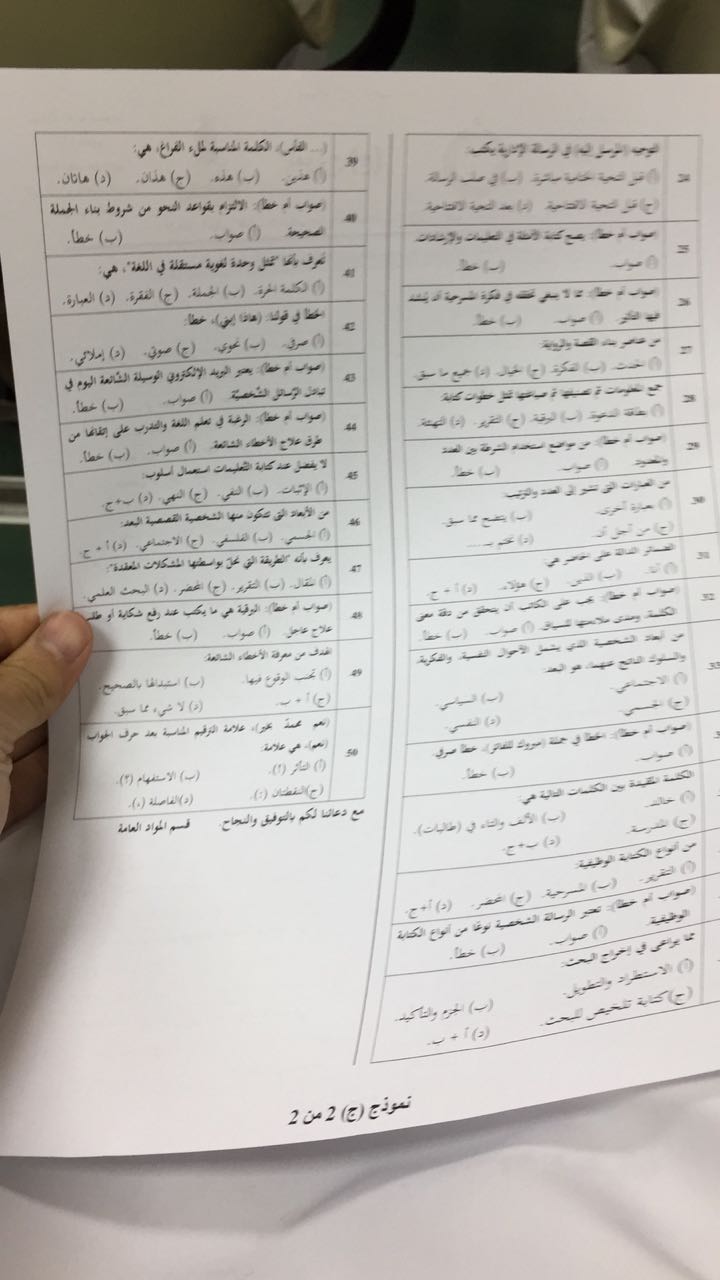 24. التوجيه (المرسل إليه) في الرسالة الإدارية يكتب:
(أ) قبل التحية الختامية مباشرة. (ب) في صلب الرسالة.
(ج) قبل التحية الافتتاحية. (د) بعد التحية الافتتاحية.
25. (صواب أم خطأ): يصح كتابة الأمثلة في التعليمات والإرشادات.
(أ) صواب. (ب) خطأ.
26. (صواب أم خطأ): مما لا ينبغي تحققه في فكرة المسرحية أن يُنشد
فيها التأثير. (أ) صواب. (ب) خطأ.
27. من عناصر بناء القصة والرواية:
(أ) الحدث. (ب) الفكرة. (ج) الخيال. (د) جميع ما سبق.
28. جمع المعلومات ثم تصنيفها ثم صياغتها تمثل خطوات كتابة:
(أ) بطاقة الدعوة. (ب) البرقية. (ج) التقرير. (د) التهنئة.
29. (صواب أم خطأ): من مواضع استخدام الشرطة بين العدد
والمعدود. (أ) صواب. (ب) خطأ.
30. من العبارات التي تشير إلى العدد والترتيب:
(أ) بعبارة أخرى. (ب) يتضح مما سبق.
(ج) من أجل أن. (د) نختم بـ.....
31. الضمائر الدالة على الحاضر هي:
(أ) أنا. (ب) الذين. (ج) هؤلاء. (د) أ + ج.
32. (صواب أم خطأ): يجب على الكاتب أن يتحقق من دقة معنى
الكلمة، ومدى ملاءمتها للسياق. (أ) صواب. (ب) خطأ.
33. من أبعاد الشخصية الذي يشمل الأحوال النفسية، والفكرية،
والسلوك الناتج عنهما، هو البعد:
(أ) الاجتماعي. (ب) السياسي.
(ج) الجسمي. (د) النفسي.
(صواب أم خطأ): الخطأ في جملة (مبروك للفائز)، خطأ صرفي.
(أ) صواب. (ب) خطأ.
الكلمة المقيدة بين الكلمات التالية هي:
(أ) خالد. (ب) الألف والتاء في (طالبات).
(ج) المدرسة. (د) ب+ج.
من أنواع الكتابة الوظيفية:
(أ) التقرير. (ب) المسرحية. (ج) المحضر. (د) أ+ج.
(صواب أم خطأ): تعتبر الرسالة الشخصية نوعًا من أنواع الكتابة
الوظيفية. (أ) صواب. (ب) خطأ.
مما يراعى في إخراج البحث:
(أ) الاستطراد والتطويل. (ب) الجزم والتأكيد.
(ج) كتابة تلخيص للبحث. (د) أ + ب.
39. (... الفأس)، الكلمة المناسبة لملء الفراغ، هي:
(أ) هذين. (ب) هذه. (ج) هذان. (د) هاتان.
40. (صواب أم خطأ): الالتزام بقواعد النحو من شروط بناء الجملة
الصحيحة. (أ) صواب. (ب) خطأ.
41. تعرف بأنها "تمثل وحدة لغوية مستقلة في اللغة"، هي:
(أ) الكلمة الحرة. (ب) الجملة. (ج) الفقرة. (د) العبارة.
42. الخطأ في قولنا: (هاذا إبني)، خطأ:
(أ) صرفي. (ب) نحوي. (ج) صوتي. (د) إملائي.
43. (صواب أم خطأ): يعتبر البريد الإلكتروني الوسيلة الشائعة اليوم في
تبادل الرسائل الشخصية. (أ) صواب. (ب) خطأ.
44. (صواب أم خطأ): الرغبة في تعلم اللغة والتدرب على إتقانها من
طرق علاج الأخطاء الشائعة. (أ) صواب. (ب) خطأ.
45. لا يفضل عند كتابة التعليمات استعمال أسلوب:
(أ) الإثبات. (ب) النفي. (ج) النهي. (د) ب+ج.
46. من الأبعاد التي تتكون منها الشخصية القصصية البعد:
(أ) الجسمي. (ب) الفلسفي. (ج) الاجتماعي. (د) أ + ج.
47. يعرف بأنه "الطريقة التي نحلّ بواسطتها المشكلات المعقدة":
(أ) المقال. (ب) التقرير. (ج) المحضر. (د) البحث العلمي.
48. (صواب أم خطأ): البرقية هي ما يكتب عند رفع شكاية أو طلب
علاج عاجل. (أ) صواب. (ب) خطأ.
49. الهدف من معرفة الأخطاء الشائعة:
(أ) تجنب الوقوع فيها. (ب) استبدالها بالصحيح.
(ج) أ + ب. (د) لا شيء مما سبق.
50. (نعم محمدٌ بخير)، علامة الترقيم المناسبة بعد حرف الجواب
(نعم)، هي علامة:
(أ) التأثر (!). (ب) الاستفهام (؟).
(ج) النقطتان (:). (د) الفاصلة (،).
مع دعائنا لكم بالتوفيق والنجاح. قسم المواد العامة
نموذج (ج) 2 من 2